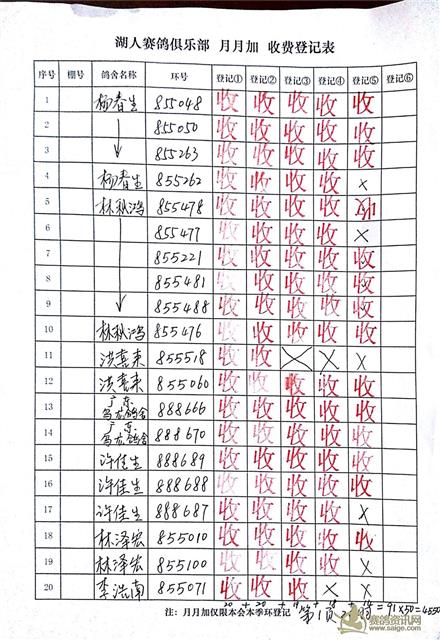 湖人赛鸽俱乐部 月月加 收费登记表
序号 棚号 鸽舍名称 环号 登记① 登记② 登记③ 登记④ 登记⑤ 登记⑥
1 杨春生 855048 收 收 收 收 收
2 ↓ 855050 收 收 收 收 收
3 855263 收 收 收 收 收
4 杨春生 855262 收 收 收 收 ×
5 林秋鸿 855478 收 收 收 收 收
6 855477 收 收 收 收 ×
7 855221 收 收 收 收 收
8 855481 收 收 收 收 收
9 ↓ 855488 收 收 收 收 收
10 林秋鸿 855476 收 收 收 收 收
11 洪喜来 855518 收 收 × × ×
12 洪喜来 855060 收 收 收 收 收
13 广东乌龙鸽舍 888666 收 收 收 收 收
14 广东乌龙鸽舍 888670 收 收 收 收 收
15 许佳生 888689 收 收 收 收 收
16 许佳生 888688 收 收 收 收 收
17 许佳生 888687 收 收 收 收 ×
18 林泽宏 855010 收 收 收 收 收
19 林泽宏 855100 收 收 收 收 ×
20 李洪南 855071 收 收 收 × ×
注：月月加仅限本会本季环登记 20 + 20 + 19 + 18 + 14 = 91×50=4550
第1页
赛鸽资讯网
www.saige.com